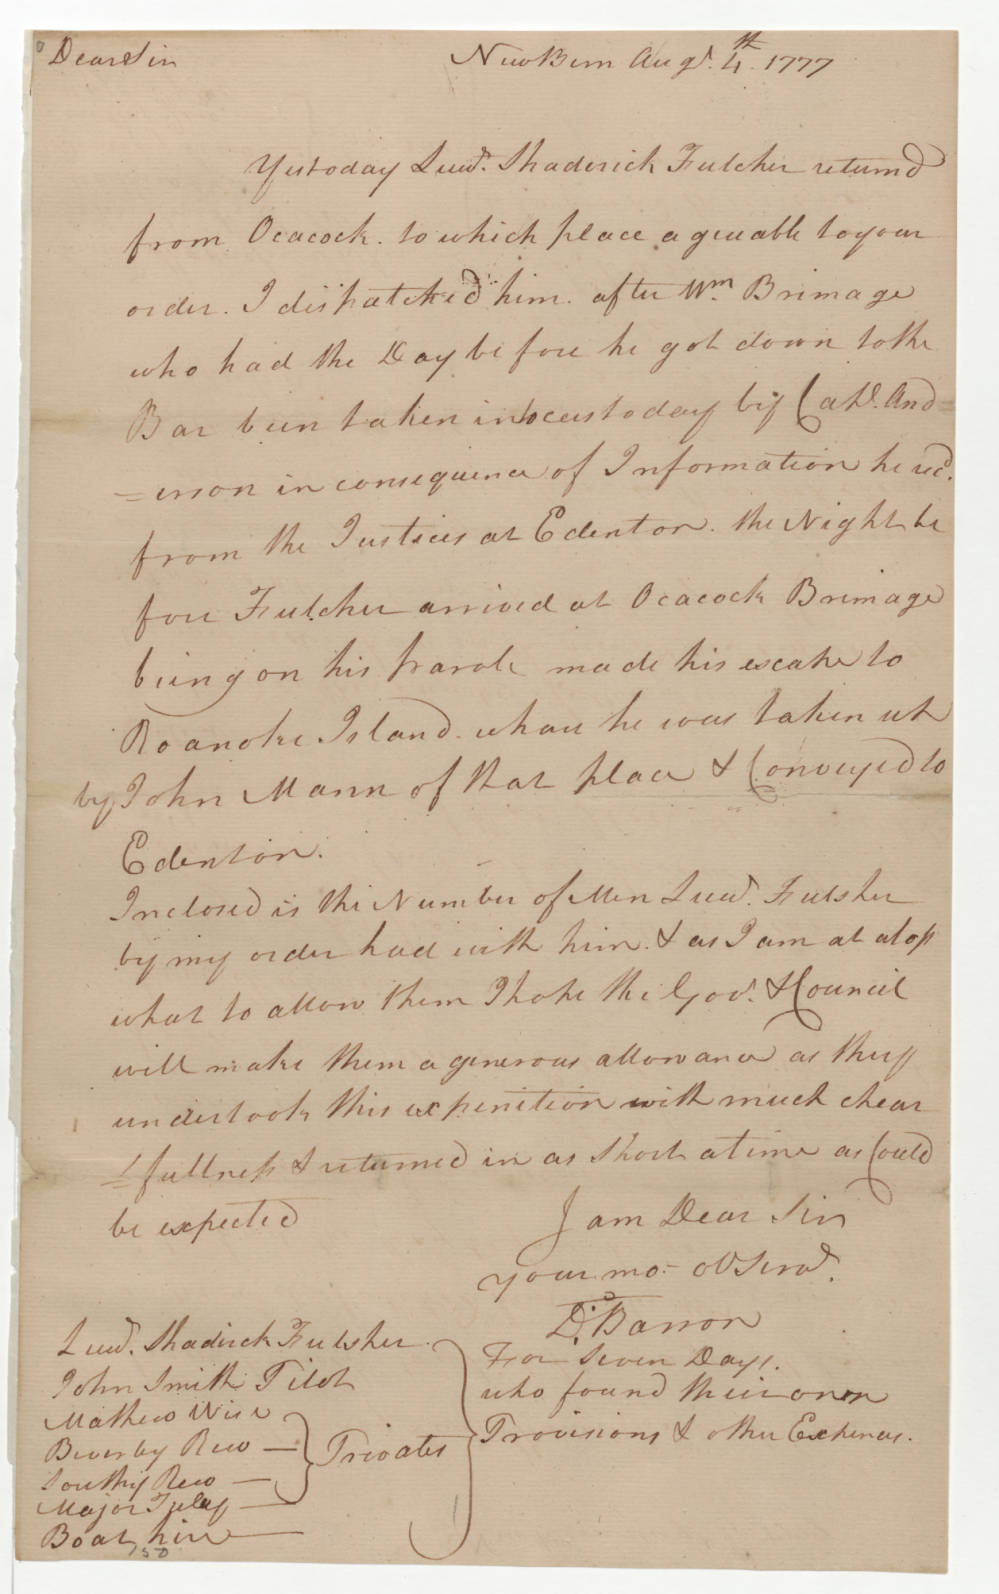 Dear Sir
NewBern Augt. 4th. 1777
Yestoday Lieut. Shaderick Fulcher returnd
from Ocacock. to which place agreeable to your
order. I dispatched him. after Wm Brimage
who had the Day before he got down to the
Bar been taken into custoday by Capt. And
=erson in consequence of Information he recd.
from the Justices at Edenton. the Night be
fore Fulcher arrived at Ocacock Brimage
being on his parole made his escape to
Roanoke Island. whare he was taken up
by John Mann of that place & Conveyed to
Edenton.
Inclosed is the Number of Men Lieut. Fulsher
by my order had with him. & as I am at a loss
what to allow them I hope the Gov. & Council
will make them a generous allowance as they
undertook this expenition with much chear
=fullness & returned in as short a time as Could
be expected
I am Dear Sir
your mo- obt Servt.
Barron
Lieut. Shadrick Fulsher
John Smith Pilot
Mathew Wise
Beverby Rew —
Southy Rew —
Major —
Boat hire —
Privates
For Seven Days.
who found their own
Provisions & other Expences.